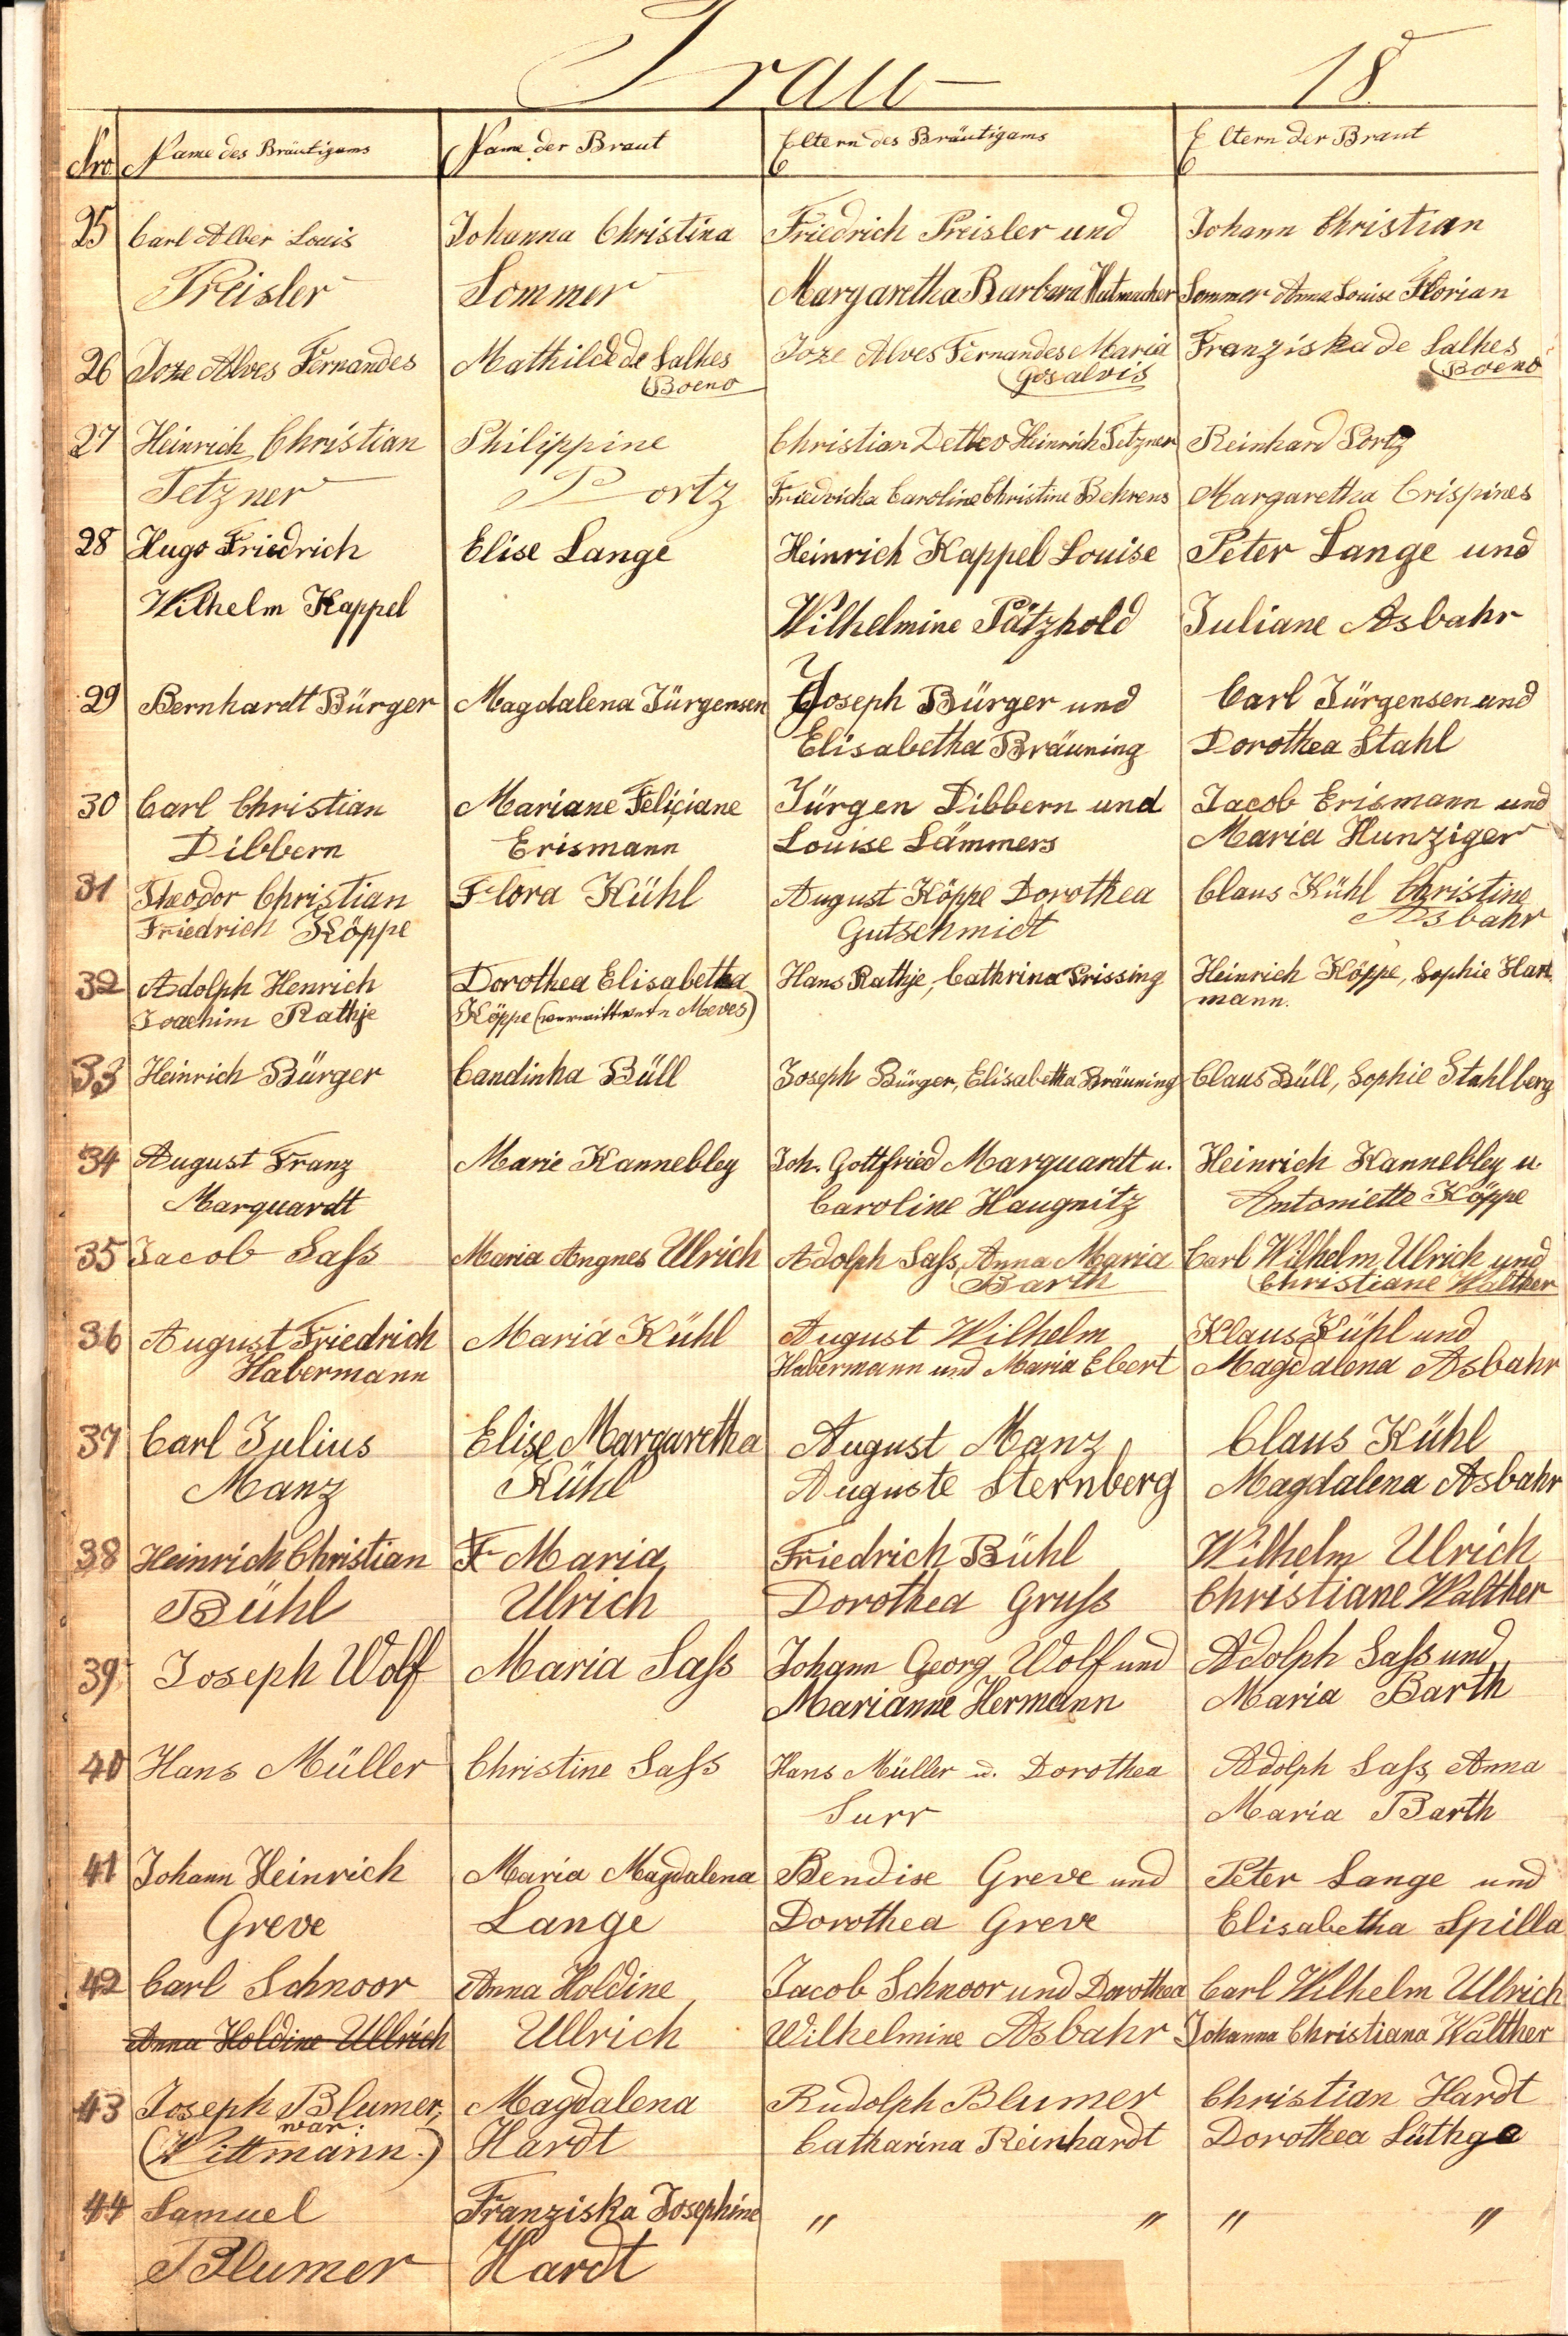 Trau- 18
Nro. Name des Bräutigams Name der Braut Eltern des Bräutigams Eltern der Braut
25 Carl Alber Louis Johanna Christina Friedrich Preisler und Johann Christian
Preisler Sommer Margaretha Barbara Hutmacher Sommer Anna Louise Florian
26 Joze Alves Fernandes Mathilde de Salhes Joze Alves Fernandes Maria Franziska de Salhes
Boeno Gosalvis Boeno
27 Heinrich Christian Philippine Christian Detlev Heinrich Tetzner Reinhard Portz
Tetzner Portz Friedricka Caroline Christine Behrens Margaretha Crispines
28 Hugo Friedrich Elise Lange Heinrich Kappel Louise Peter Lange und
Wilhelm Kappel Wilhelmine Pätzhold Juliane Asbahr
29 Bernhardt Bürger Magdalena Jürgensen Joseph Bürger und Carl Jürgensen und
Elisabetha Bräuning Dorothea Stahl
30 Carl Christian Mariane Feliciane Jürgen Dibbern und Jacob Erismann und
Dibbern Erismann Louise Lämmers Maria Hunziger
31 Theodor Christian Flora Kühl August Köppe Dorothea Claus Kühl Christine
Friedrich Köppe Gutschmidt Asbahr
32 Adolph Henrich Dorothea Elisabetha Hans Rathje, Cathrina Prissing Heinrich Köppe, Sophie Hart
Joachim Rathje Köppe (verwittwete Meves) mann.
33 Heinrich Bürger Candinha Büll Joseph Bürger, Elisabetha Bräuning Claus Büll, Sophie Stahlberg
34 August Franz Marie Kannebley Joh. Gottfried Marquardt u. Heinrich Kannebley u.
Marquardt Caroline Haugnitz Antoniette Köppe
35 Jacob Saſs Maria Angnes Ulrich Adolph Saſs, Anna Maria Carl Wilhelm Ulrich und
Barth Christiane Walther
36 August Friedrich Maria Kühl August Wilhelm Klaus Kühl und
Habermann Habermann und Maria Ebert Magdalena Asbahr
37 Carl Julius Elise Margaretha August Manz Claus Kühl
Manz Kühl Auguste Sternberg Magdalena Asbahr
38 Heinrich Christian F Maria Friedrich Bühl Wilhelm Ulrich
Bühl Ulrich Dorothea Gruſs Christiane Walther
39 Joseph Wolf Maria Saſs Johann Georg Wolf und Adolph Saſs und
Marianne Hermann Maria Barth
40 Hans Müller Christine Saſs Hans Müller u. Dorothea Adolph Saſs, Anna
Surr Maria Barth
41 Johann Heinrich Maria Magdalena Bendixe Greve und Peter Lange und
Greve Lange Dorothea Greve Elisabetha Spilla
42 Carl Schnoor Anna Holdine Jacob Schnoor und Dorothea Carl Wilhelm Ullrich
Anna Holdine Ullrich Ullrich Wilhelmine Asbahr Johanna Christiana Walther
43 Joseph Blumer, Magdalena Rudolph Blumer Christian Hardt
war:
(Wittmann.) Hardt Catharina Reinhardt Dorothea Lüthge
44 Samuel Franziska Josephine " " " "
Blumer Hardt